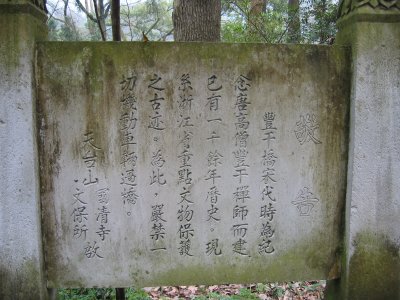 敬告
豐干橋宋代時為記
念唐高僧豐干禪師而建
已有一千餘年歷史。現
系浙江省重點文物保護
之古迹。為此，嚴禁一
切機動車輛過橋。
天台山 國清寺
文保所 啟